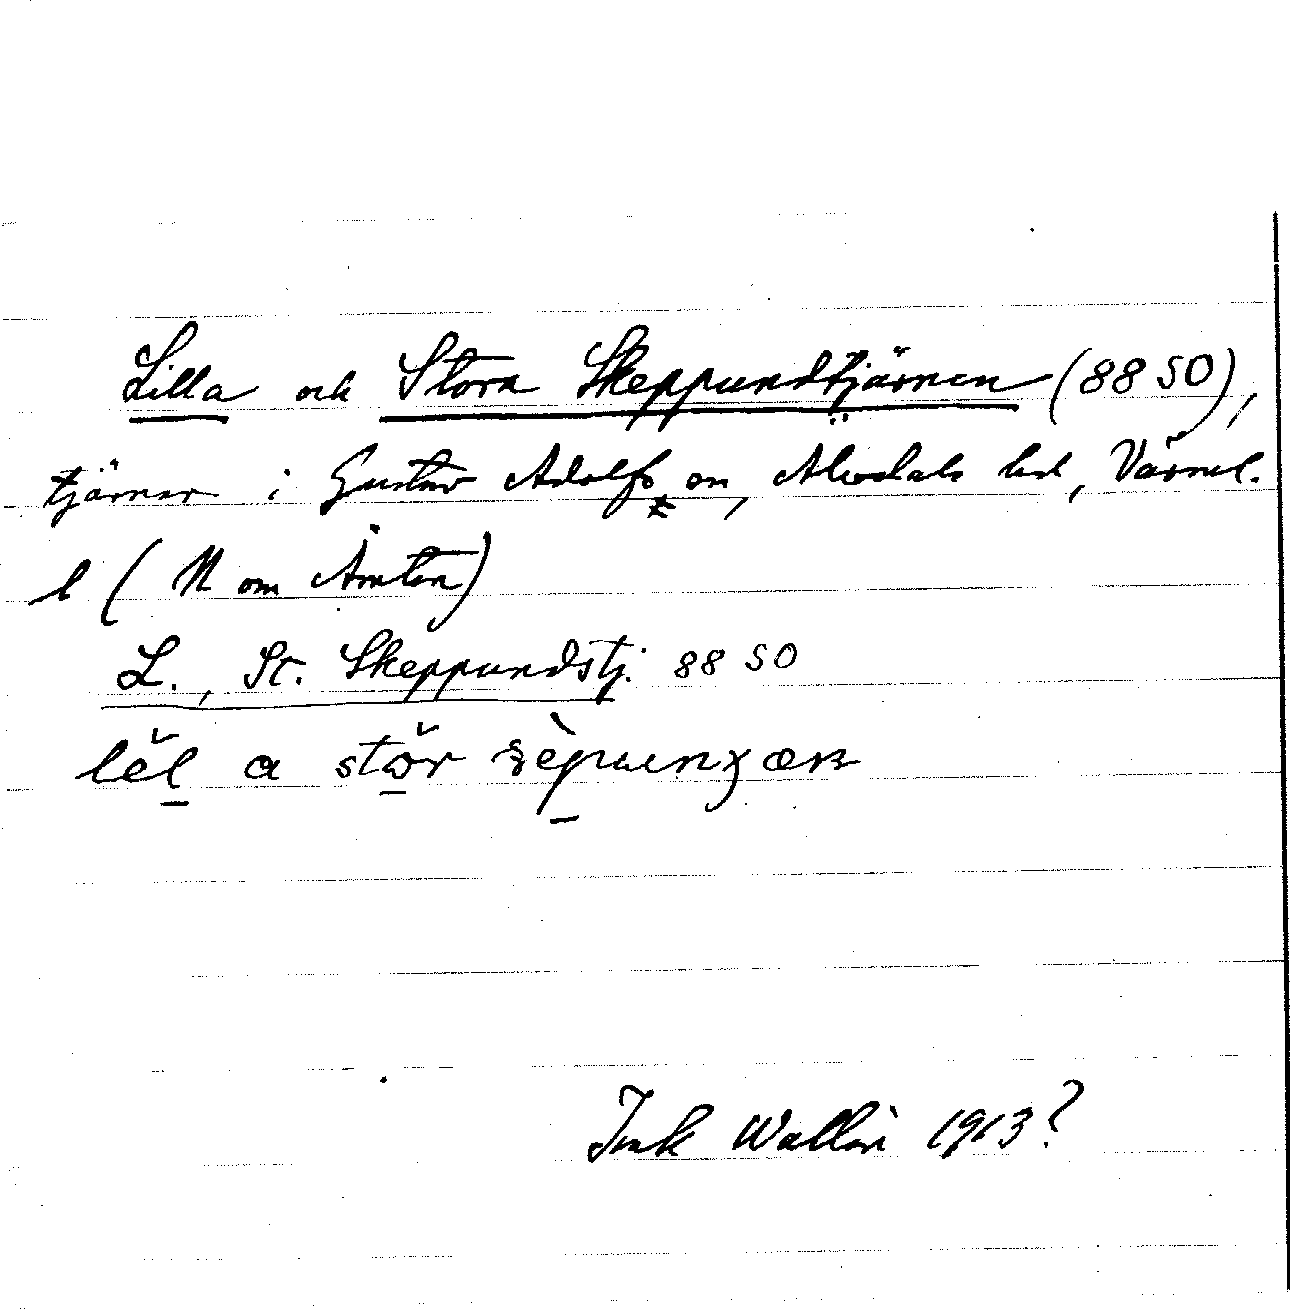 Lilla och Stora Skeppundtjärnen (88 SO),
tjärnar i Gustav Adolfs sn, Älvdals hd, Värml.
l (N om Ämten)
L., St. Skeppundstj. 88 SO
lĕl a stŏr
Wallin 1913?